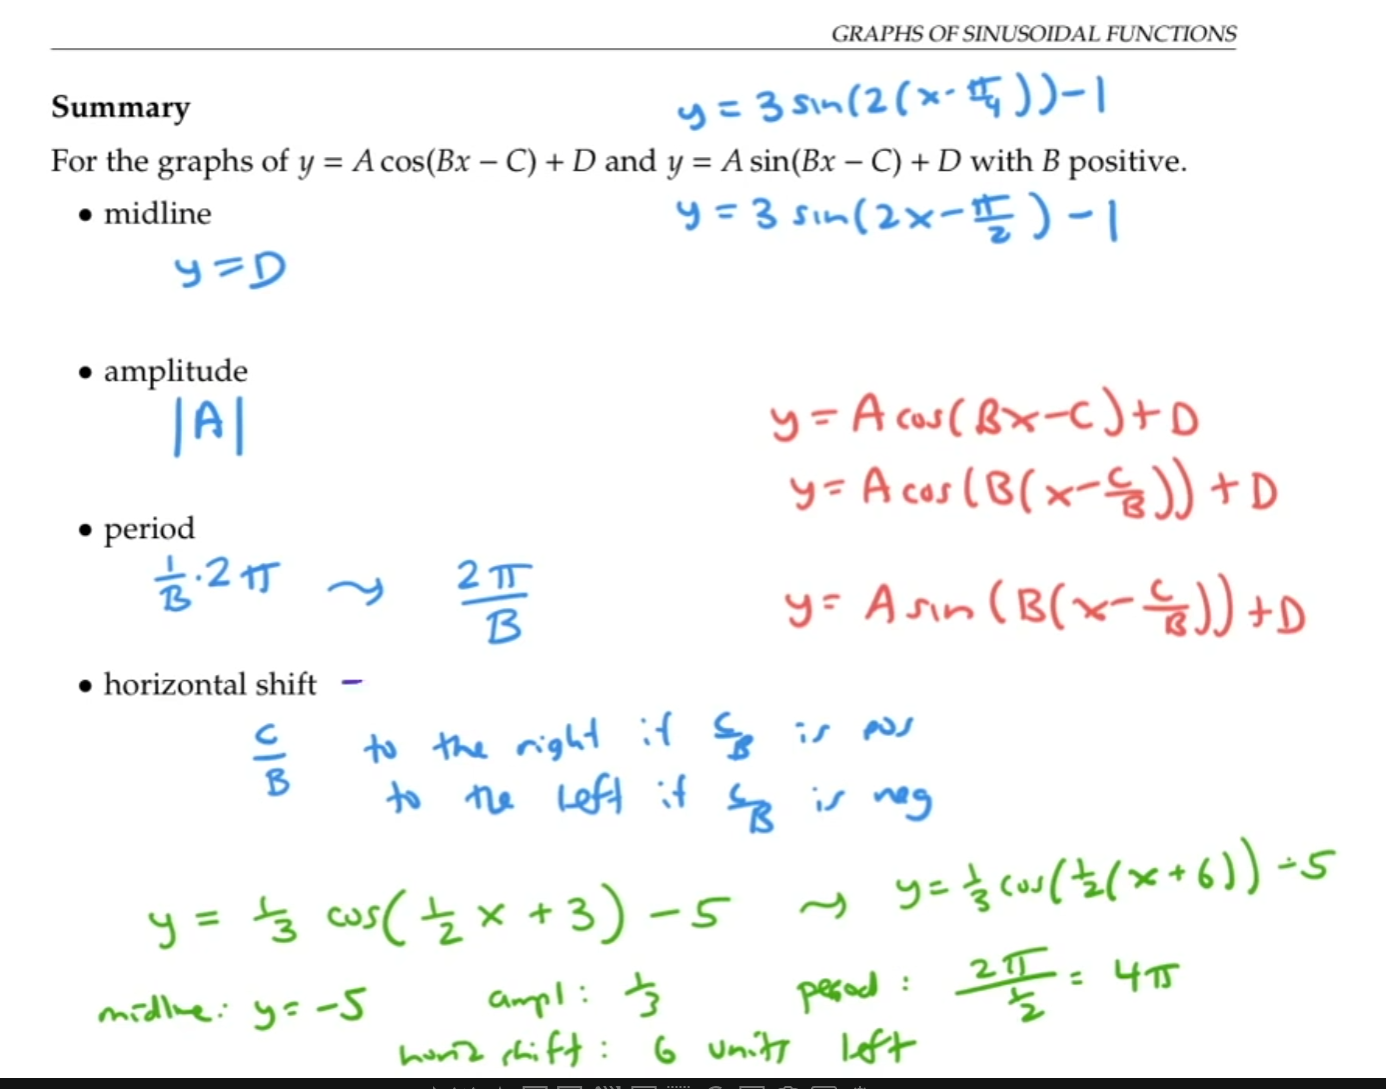 GRAPHS OF SINUSOIDAL FUNCTIONS
y = 3 sin(2(x - π/4)) - 1
Summary
For the graphs of y = A cos(Bx − C) + D and y = A sin(Bx − C) + D with B positive.
• midline
y = 3 sin(2x - π/2) - 1
y = D
• amplitude
|A|
y = A cos(Bx - C) + D
y = A cos(B(x - C/B)) + D
• period
1/B · 2π ⤳ 2π/B
y = A sin(B(x - C/B)) + D
• horizontal shift –
C/B to the right if C/B is pos
to the left if C/B is neg
y = 1/3 cos(1/2 x + 3) - 5 ⤳ y = 1/3 cos(1/2(x + 6)) - 5
midline: y = -5 ampl: 1/3 period: 2π/(1/2) = 4π
horiz shift: 6 units left